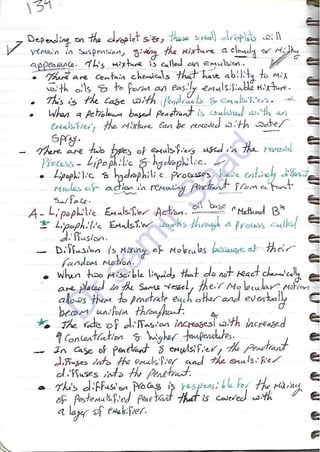 139
- Depending on the droplet size, these small droplets will
remain in suspension, giving the mixture a cloudy or milky
appearance. This mixture is called an emulsion.
• There are certain chemicals that have ability to mix
with oils & to form an easily emulsifiable mixture.
• This is the case with penetrants & emulsifiers.
• When a petroleum based penetrant is combined with an
emulsifier, the mixture can be removed with water
spray.
- There are two types of emulsifiers used in the removal
Process - Lipophilic & hydrophilic.
• Lipophilic & hydrophilic processes have entirely different
modes of action in removing penetrant from a part
surface.
A- Lipophilic Emulsifier Action. oil base "Method B"
Lipophilic Emulsifier works through a process called
diffusion.
- Diffusion is mixing of Molecules because of their
random motion.
• When two miscible liquids that do not react chemically
are placed in the same vessel, their Molecular Motion
allows them to penetrate each other and eventually
become uniform throughout.
• The rate of diffusion increases with increased
Concentration & higher temperatures.
- In case of penetrant & emulsifier, the penetrant
diffuses into the emulsifier and the emulsifier
diffuses into the penetrant.
• This diffusion process is responsible for the mixing
of Postemulsified penetrant that is covered with
a layer of emulsifier.